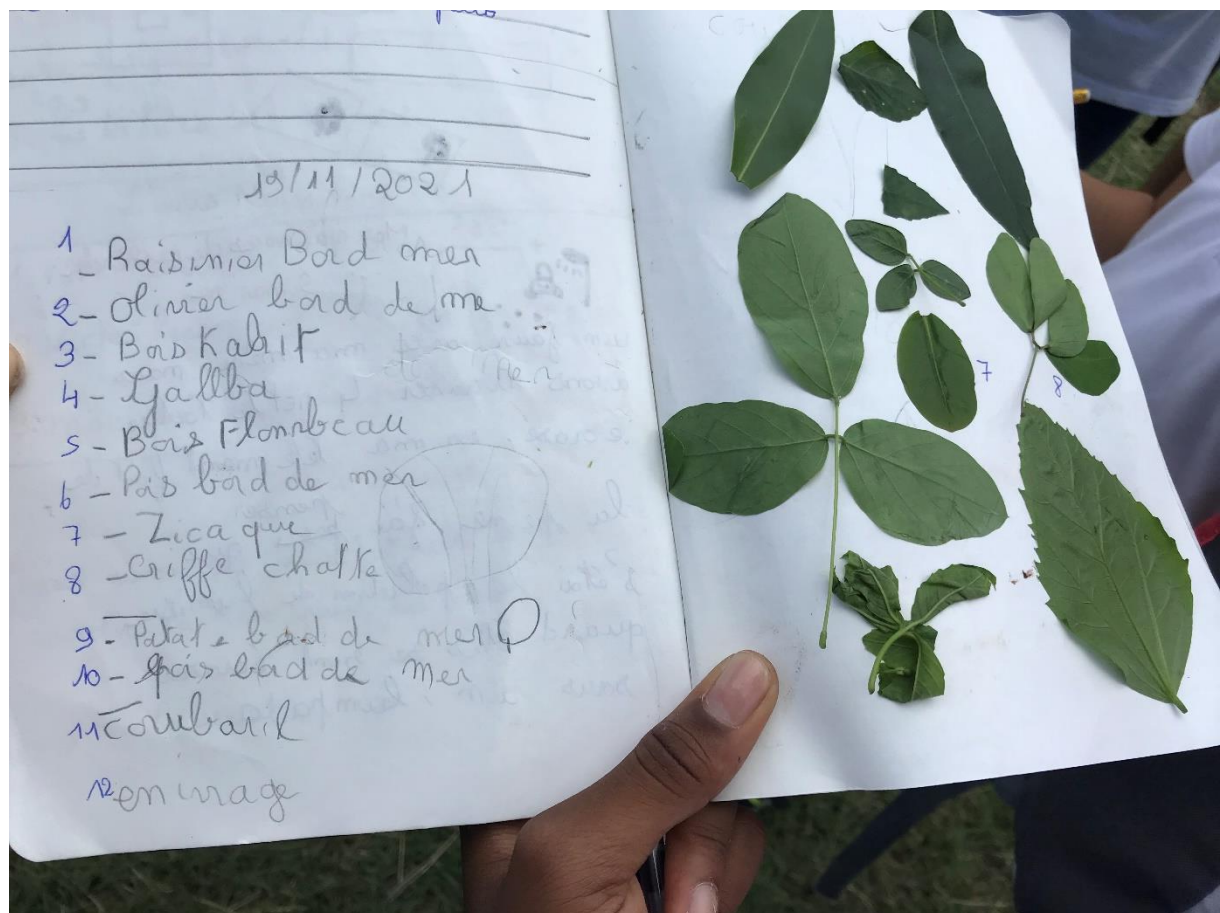 19/11/2021
1 - Raisinier Bord mer
2 - Olivier bord de me
3 - Bois Kabrit
4 - Gallba
5 - Bois Flombeau
6 - Pois bord de mer
7 - Zicaque
8 - Griffe chatte
9 - Patate bord de mer
10 - pois bord de mer
11 Courbaril
12 enivrage
7
8